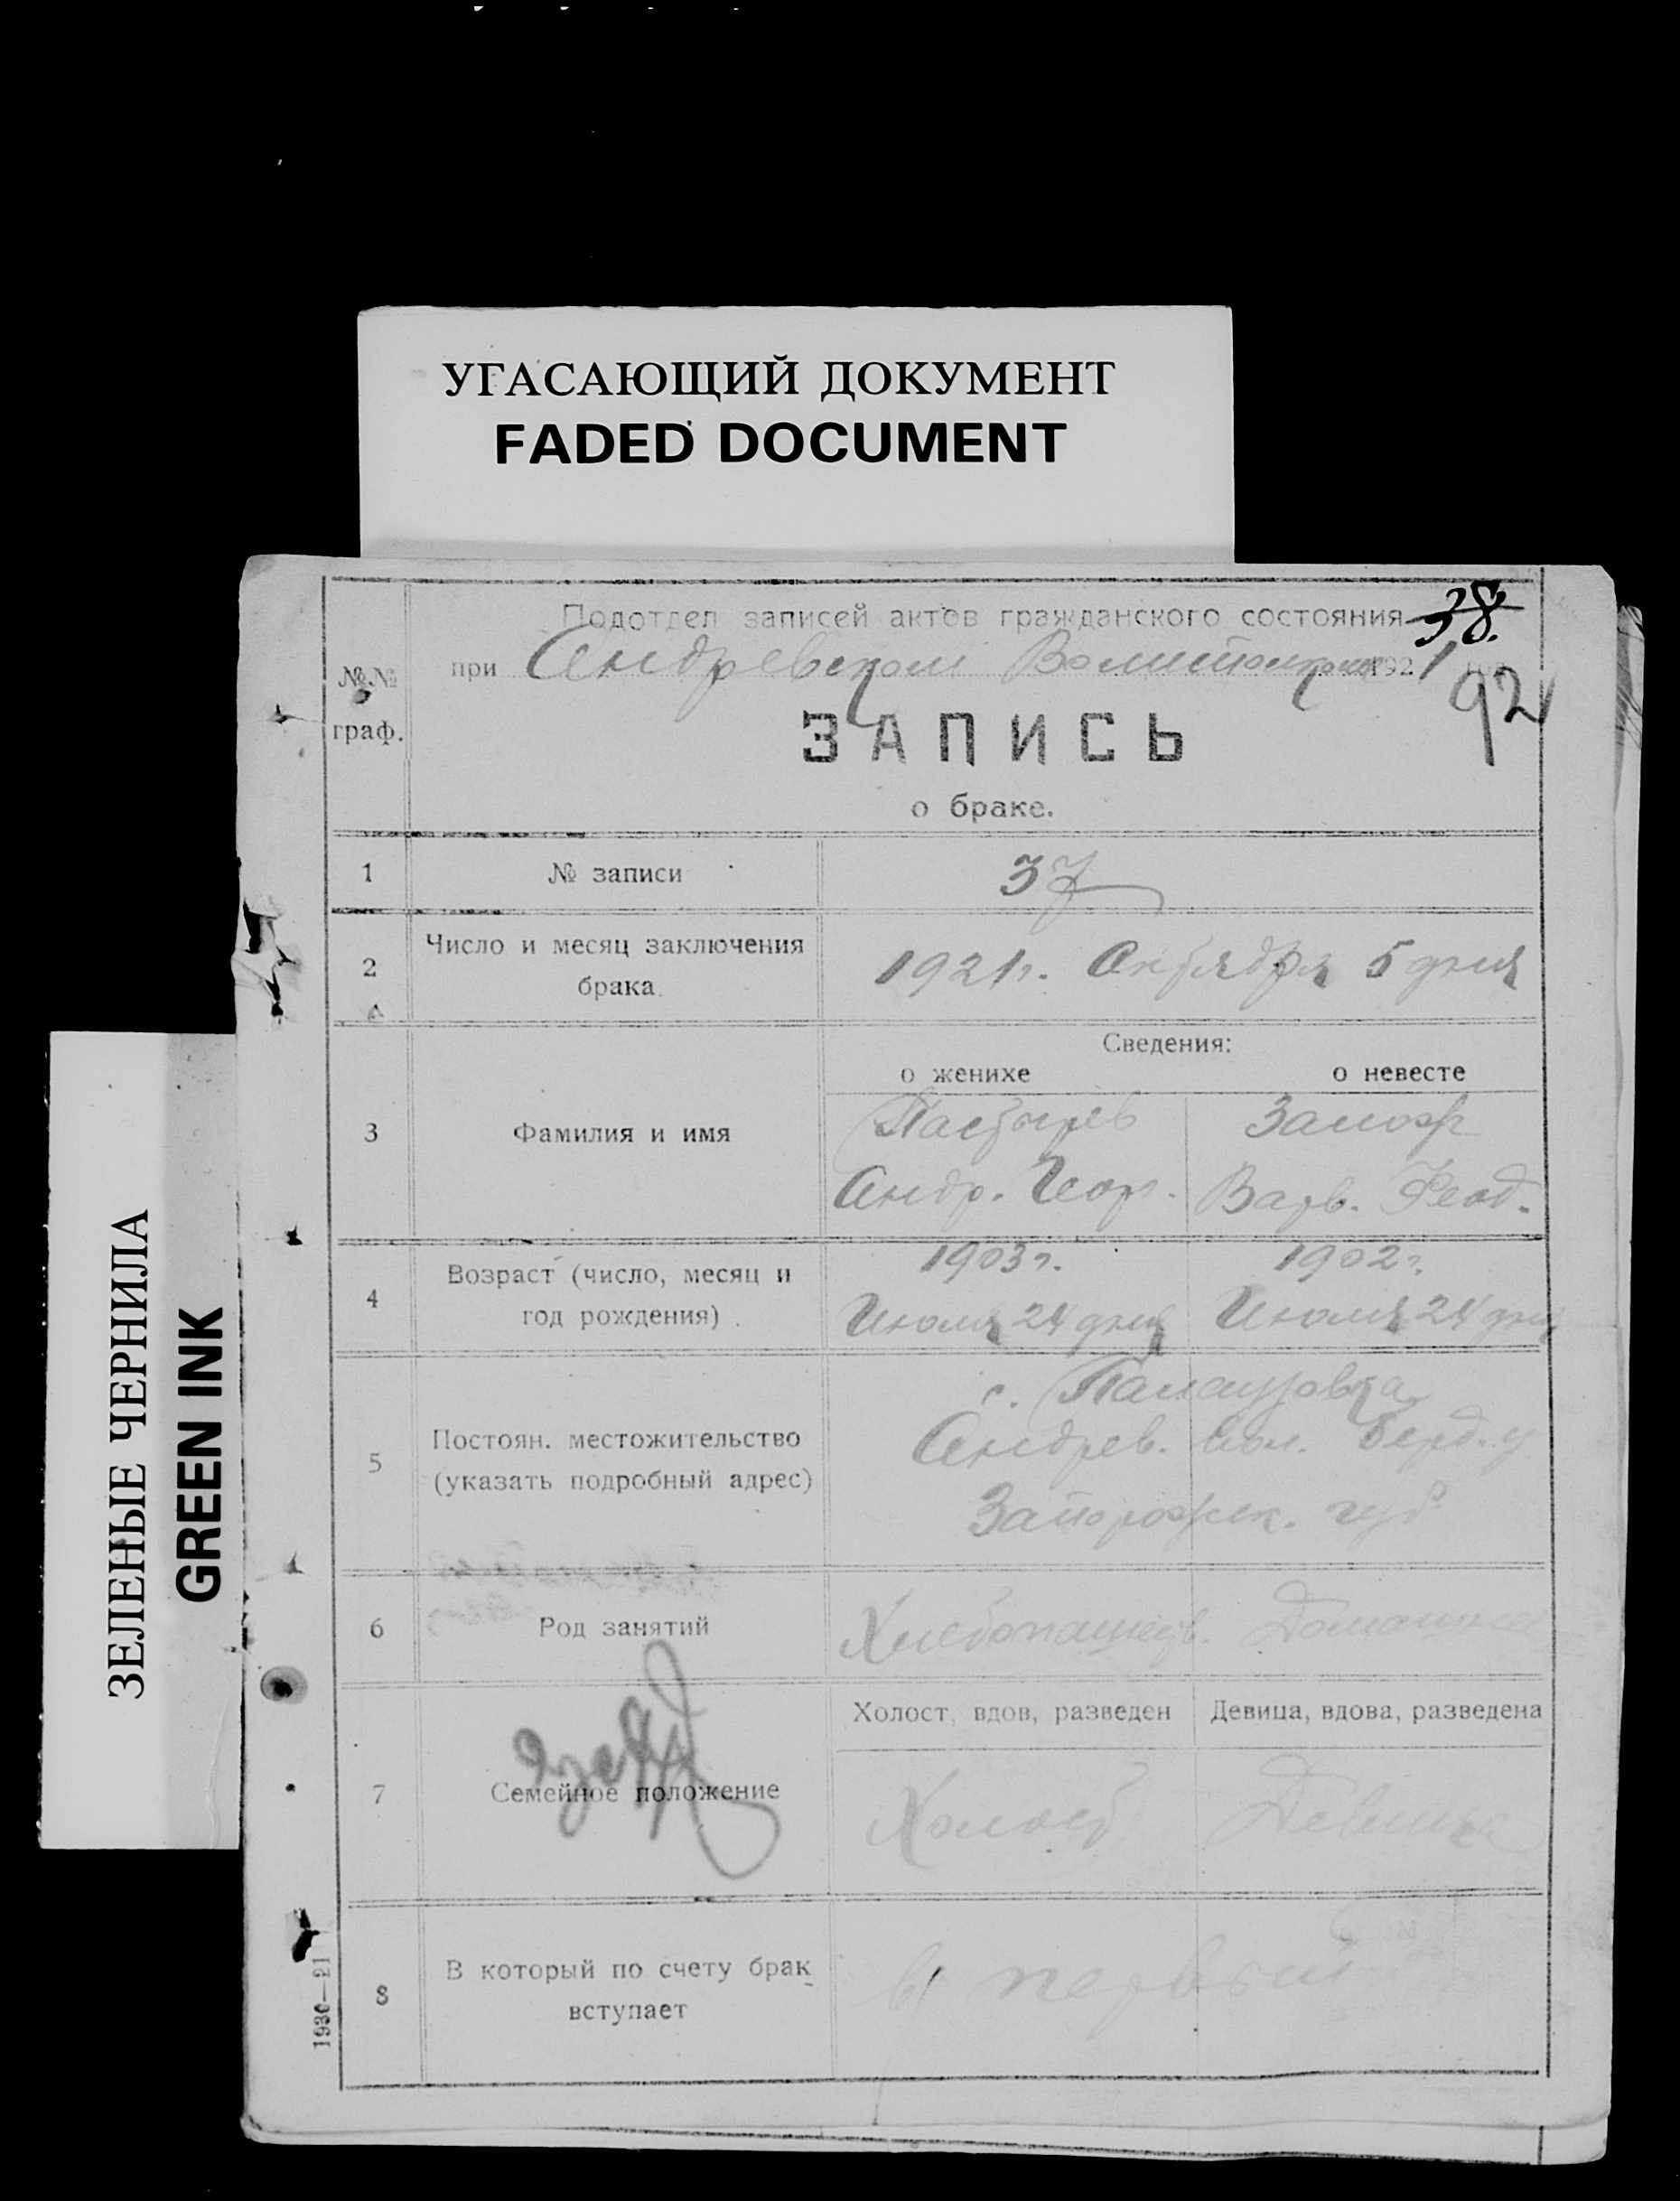 УГАСАЮЩИЙ ДОКУМЕНТ
FADED DOCUMENT
ЗЕЛЕНЫЕ ЧЕРНИЛА
GREEN INK
Подотдел записей актов гражданского состояния
38.
при Андревском 1921
92
№№ граф.
ЗАПИСЬ
о браке.
1 № записи 37
2 Число и месяц заключения брака. 1921 г. Октября 5 дня
Сведения:
о женихе о невесте
3 Фамилия и имя
Пастырев
Андр. Геор. Варв. Феод.
4 Возраст (число, месяц и год рождения).
1903 г. 1902 г.
Июля 24 дня Июля 24 дня
5 Постоян. местожительство (указать подробный адрес)
с.
Андрев. вол. Берд. у.
Запорожск. губ.
6 Род занятий Хлебопашец
7 Семейное положение
Холост, вдов, разведен Девица, вдова, разведена
Холост Девица
8 В который по счету брак вступает
в первый
1930—21